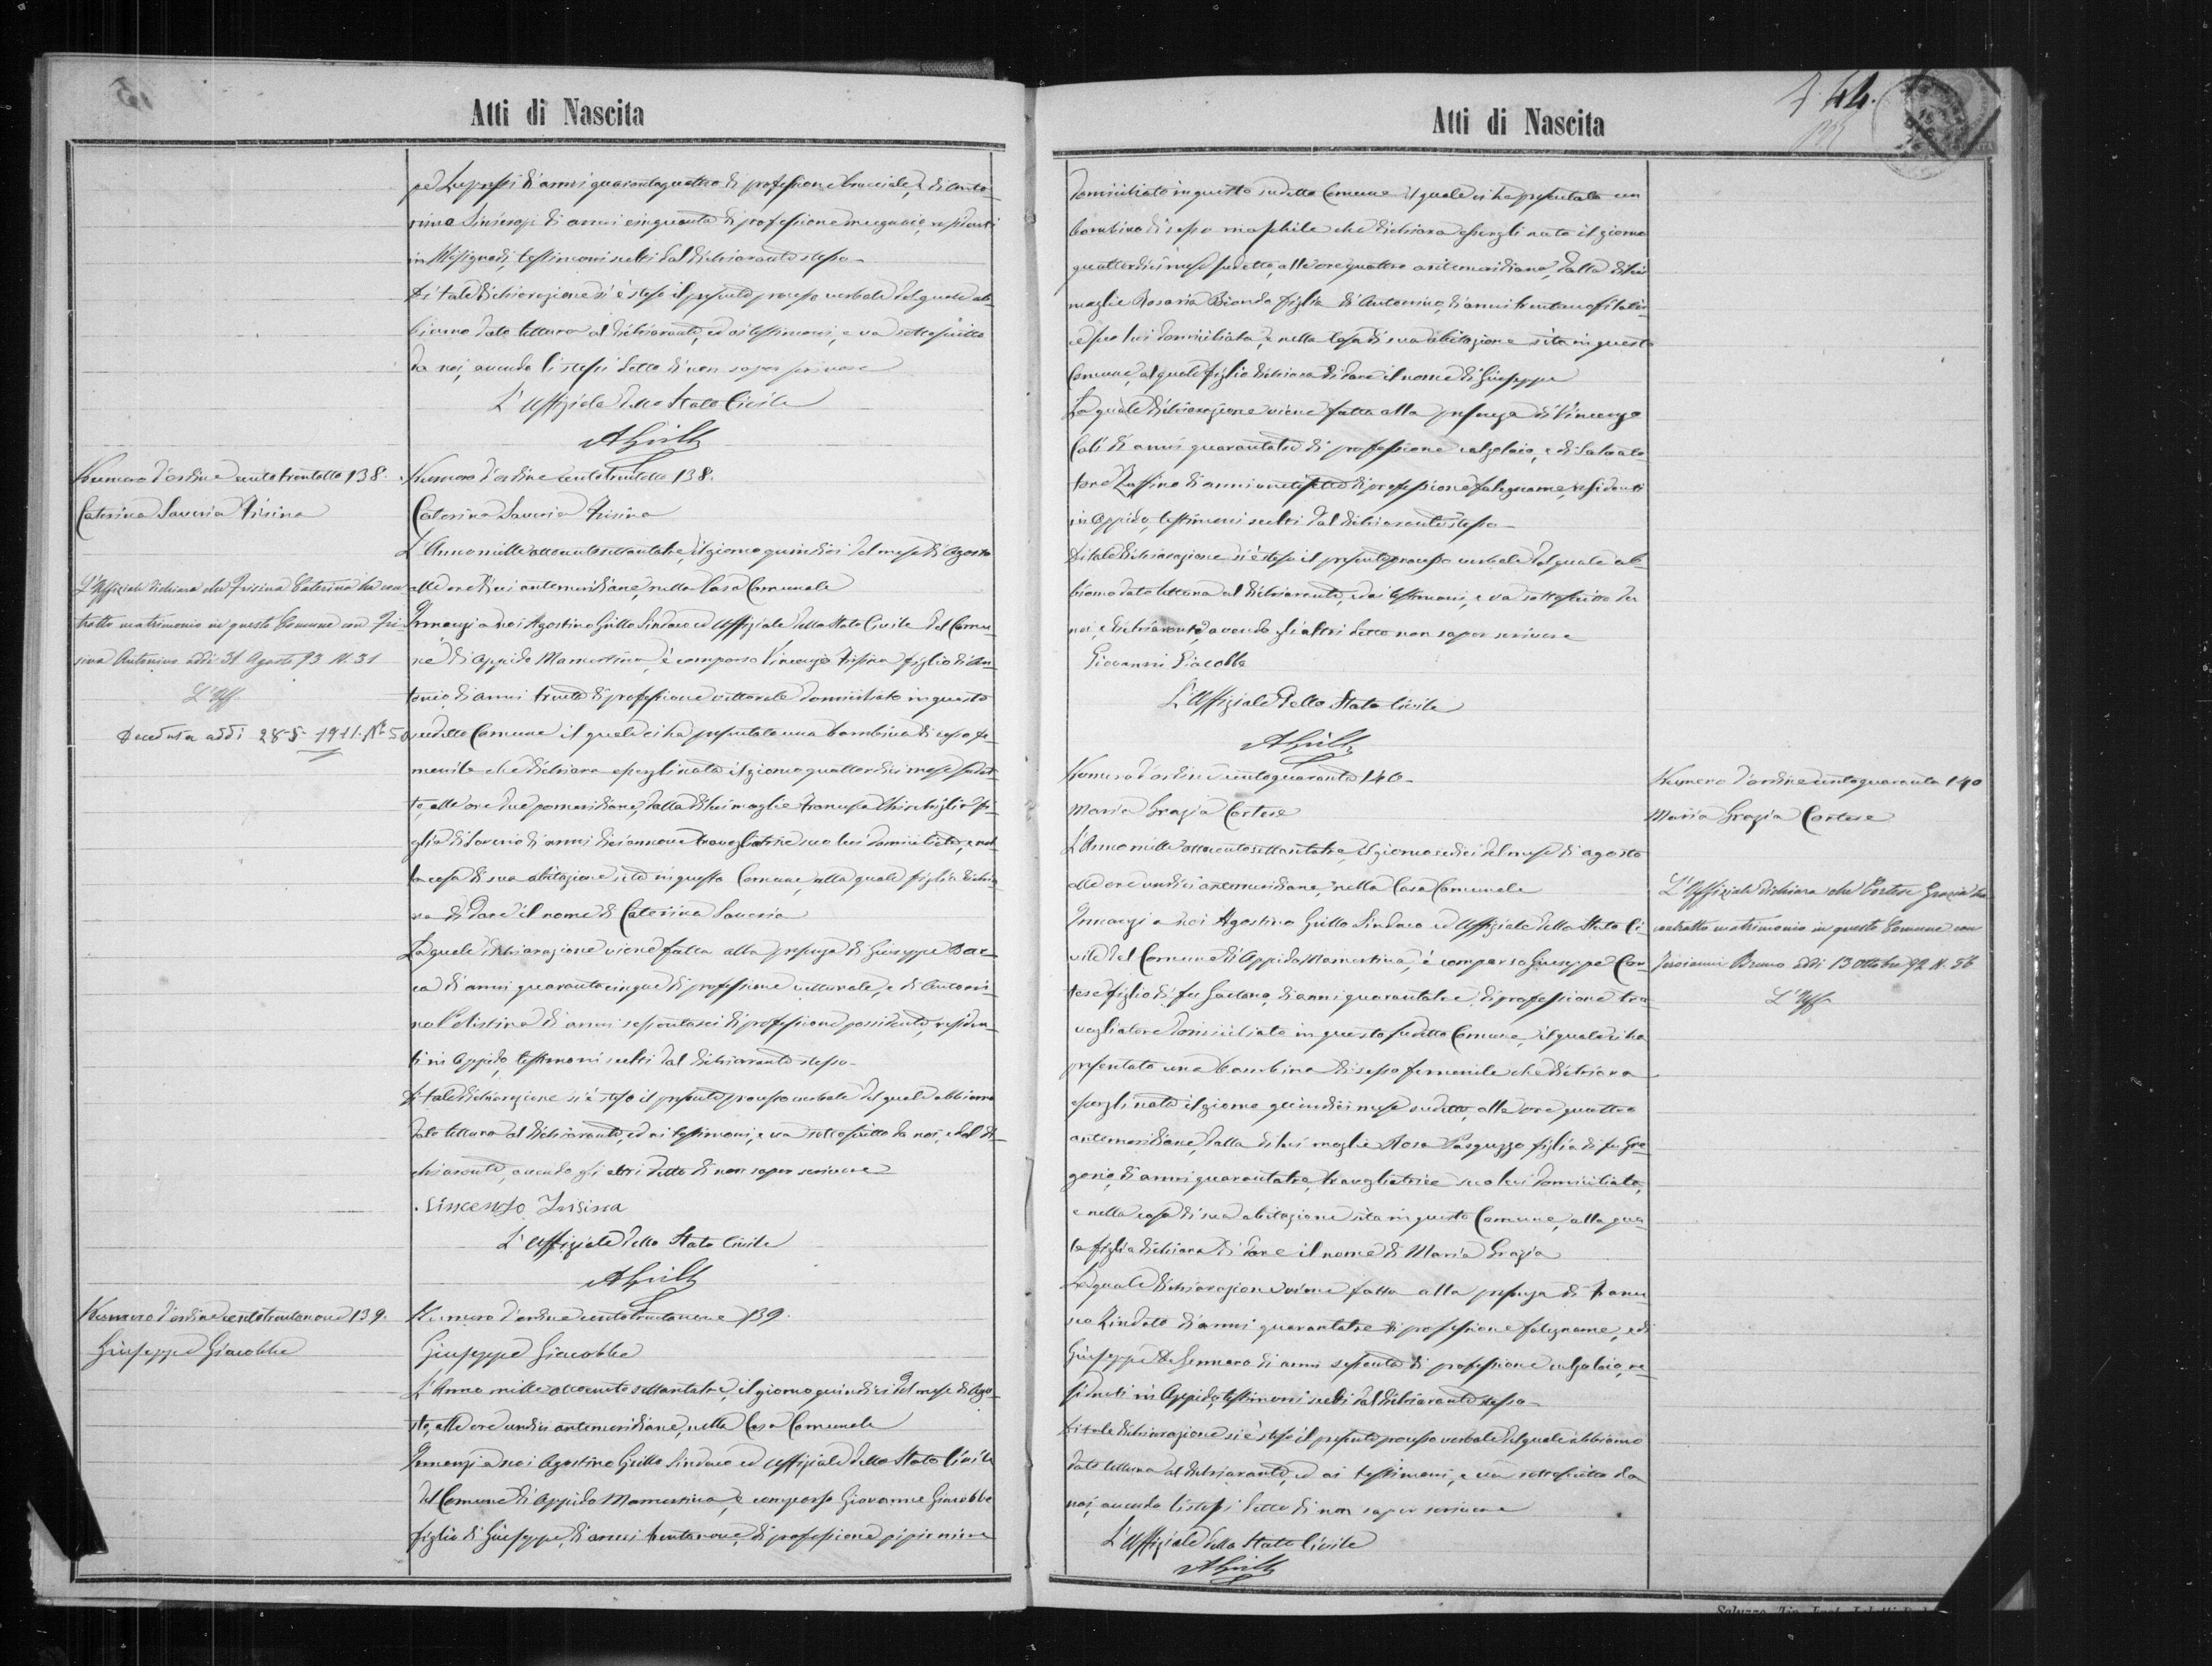 Atti di Nascita
pe Lupressi di anni quarantaquattro di professione bracciale, e di Anto-
nino Sinisropi di anni cinquanta di professione mugnaio, residenti
in Messignadi, testimoni scelti dal dichiarante stesso-
Di tale dichiarazione si è steso il presente processo verbale del quale ab-
biamo dato lettura al dichiarante, ed ai testimoni, e va sottoscritto
da noi, avendo li stessi detto di non saper scrivere
L'Uffiziale dello Stato Civile
AGrillo
Numero d'ordine centotrentotto 138.
Caterina Saveria Frisina
L'Uffiziale dichiara che Frisina Caterina ha con-
tratto matrimonio in questo Comune con Fri-
sina Antonino addì 31 Agosto 93 N. 31
L'Uff
Deceduta addì 28-8-1911. N° 50
Numero d'ordine centotrentotto 138.
Caterina Saveria Frisina
L'Anno mille ottocentosettantatre, il giorno quindici del mese di Agosto
alle ore dieci antemeridiane, nella Casa Comunale
Innanzi a noi Agostino Grillo Sindaco ed Uffiziale dello Stato Civile del Comu-
ne di Oppido Mamertina, è comparso Vincenzo Frisina figlio di An-
tonio, di anni trenta di professione vetturale domiciliato in questo
sudetto Comune il quale ci ha presentato una bambina di sesso fe-
menile che dichiara essergli nata il giorno quattordici mese sudet-
to, alle ore due pomeridiane, dalla di lui moglie Francesca Chirchiglia fi-
glia di Saverio di anni diciannove travagliatrice seco lui domiciliata, e nel-
la casa di sua abitazione sita in questo Comune, alla quale figlia dichia-
ra di dare il nome di Caterina Saveria
La quale dichiarazione viene fatta alla presenza di Giuseppe Bar-
ca di anni quarantacinque di professione vetturale, e di Antoni-
no Pelistina di anni sessantasei di professione possidente, residen-
ti in Oppido, testimoni scelti dal dichiarante stesso-
Di tale dichiarazione si è steso il presente processo verbale del quale abbiamo
dato lettura al dichiarante, ed ai testimoni, e va sottoscritto da noi, e dal di-
chiarante, avendo gli altri detto di non saper scrivere
Vincenzo Frisina
L'Uffiziale dello Stato Civile
AGrillo
Numero d'ordine centotrentanove 139.
Giuseppe Giacobbe
Numero d'ordine centotrentanove 139.
Giuseppe Giacobbe
L'Anno mille ottocento settantatre, il giorno quindici del mese di Ago-
sto, alle ore undici antemeridiane, nella Casa Comunale
Innanzi a noi Agostino Grillo Sindaco ed Uffiziale dello Stato Civile
del Comune di Oppido Mamertina, è comparso Giovanni Giacobbe
figlio di Giuseppe, di anni trentanove, di professione pipieniere
Atti di Nascita
44.
domiciliato in questo sudetto Comune il quale ci ha presentato un
bambino di sesso maschile che dichiara essergli nato il giorno
quattordici mese sudetto, alle ore quattro antemeridiane, dalla di lui
moglie Rosaria Bionda figlia di Antonino, di anni trentuno filatri-
ce seco lui domiciliata, e nella casa di sua abitazione sita in questo
Comune, al quale figlio dichiara di dare il nome di Giuseppe
La quale dichiarazione viene fatta alla presenza di Vincenzo
Calì di anni quarantatre di professione calzolaio, e di Salvato-
tore Ruffino di anni ventisette di professione falegname, residenti
in Oppido, testimoni scelti dal dichiarante stesso-
Di tale dichiarazione si è steso il presente processo verbale del quale ab-
biamo dato lettura al dichiarante, ed ai testimoni, e va sottoscritto da
noi, e dichiarante, avendo gli altri detto non saper scrivere
Giovanni Giacobbe
L'Uffiziale dello Stato Civile
AGrillo
Numero d'ordine centoquaranta 140-
Maria Grazia Cortese
L'Anno mille ottocentosettantatre, il giorno sedici del mese di agosto
alle ore undici antemeridiane, nella Casa Comunale
Innanzi a noi Agostino Grillo Sindaco ed Uffiziale dello Stato Ci-
vile del Comune di Oppido Mamertina, è comparso Giuseppe Cor-
tese figlio di fu Gaetano, di anni quarantatre, di professione tra-
vagliatore domiciliato in questo sudetto Comune, il quale ci ha
presentato una bambina di sesso femenile che dichiara
essergli nata il giorno quindici mese sudetto, alle ore quattro
antemeridiane, dalla di lui moglie Rosa Pasquzzo figlia di fu Gre-
gorio, di anni quarantatre, travagliatrice seco lui domiciliata,
e nella casa di sua abitazione sita in questo Comune, alla qua-
le figlia dichiara di dare il nome di Maria Grazia
La quale dichiarazione viene fatta alla presenza di Frances-
co Zindato di anni quarantatre di professione falegname, e di
Giuseppe De Gennaro di anni sessanta di professione calzolaio, re-
sidenti in Oppido, testimoni scelti dal dichiarante stesso-
Di tale dichiarazione si è steso il presente processo verbale del quale abbiamo
dato lettura al dichiarante, ed ai testimoni, e va sottoscritto da
noi, avendo li stessi detto di non saper scrivere
L'Uffiziale dello Stato Civile
AGrillo
Numero d'ordine centoquaranta 140
Maria Grazia Cortese
L'Uffiziale dichiara che Cortese Grazia ha
contratto matrimonio in questo Comune con
Bruno addì 13 ottobre 92 N. 56
L'Uff